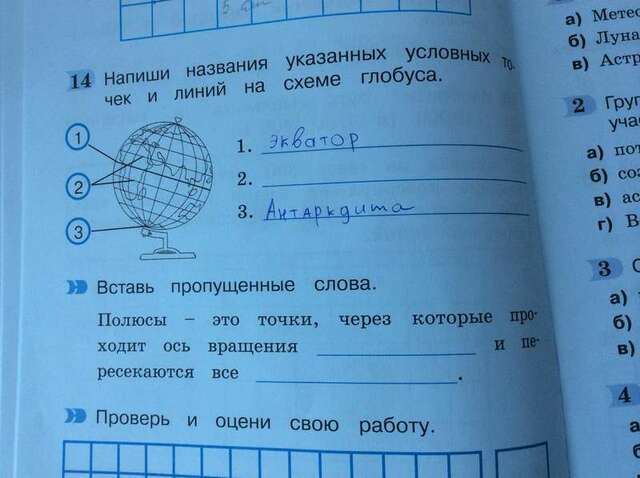 5 см
14 Напиши названия указанных условных то-
чек и линий на схеме глобуса.
1
2
3
1. экватор
2.
3. Антаркдита
Вставь пропущенные слова.
Полюсы – это точки, через которые про-
ходит ось вращения и пе-
ресекаются все .
Проверь и оцени свою работу.
а) Метео
б) Луна
в) Астр
2 Груп
учас
а) пот
б) соз
в) ас
г) В
3 С
а)
б)
в)
4
а
б